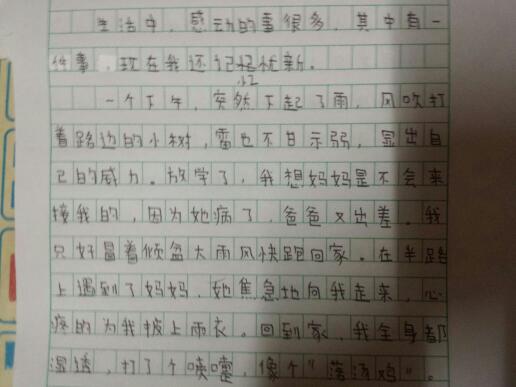 生活中，感动的事很多，其中有一
件事，现在我还记忆犹新。
一个下午，突然下起了雨，风吹打
着路边的小树，雷也不甘示弱，显出自
己的威力。放学了，我想妈妈是不会来
接我的，因为她病了，爸爸又出差。我
只好冒着倾盆大雨风快跑回家。在半路
上遇到了妈妈，她焦急地向我走来，心
疼的为我披上雨衣。回到家，我全身都
湿透，打了个喷嚏，像个"落汤鸡"。